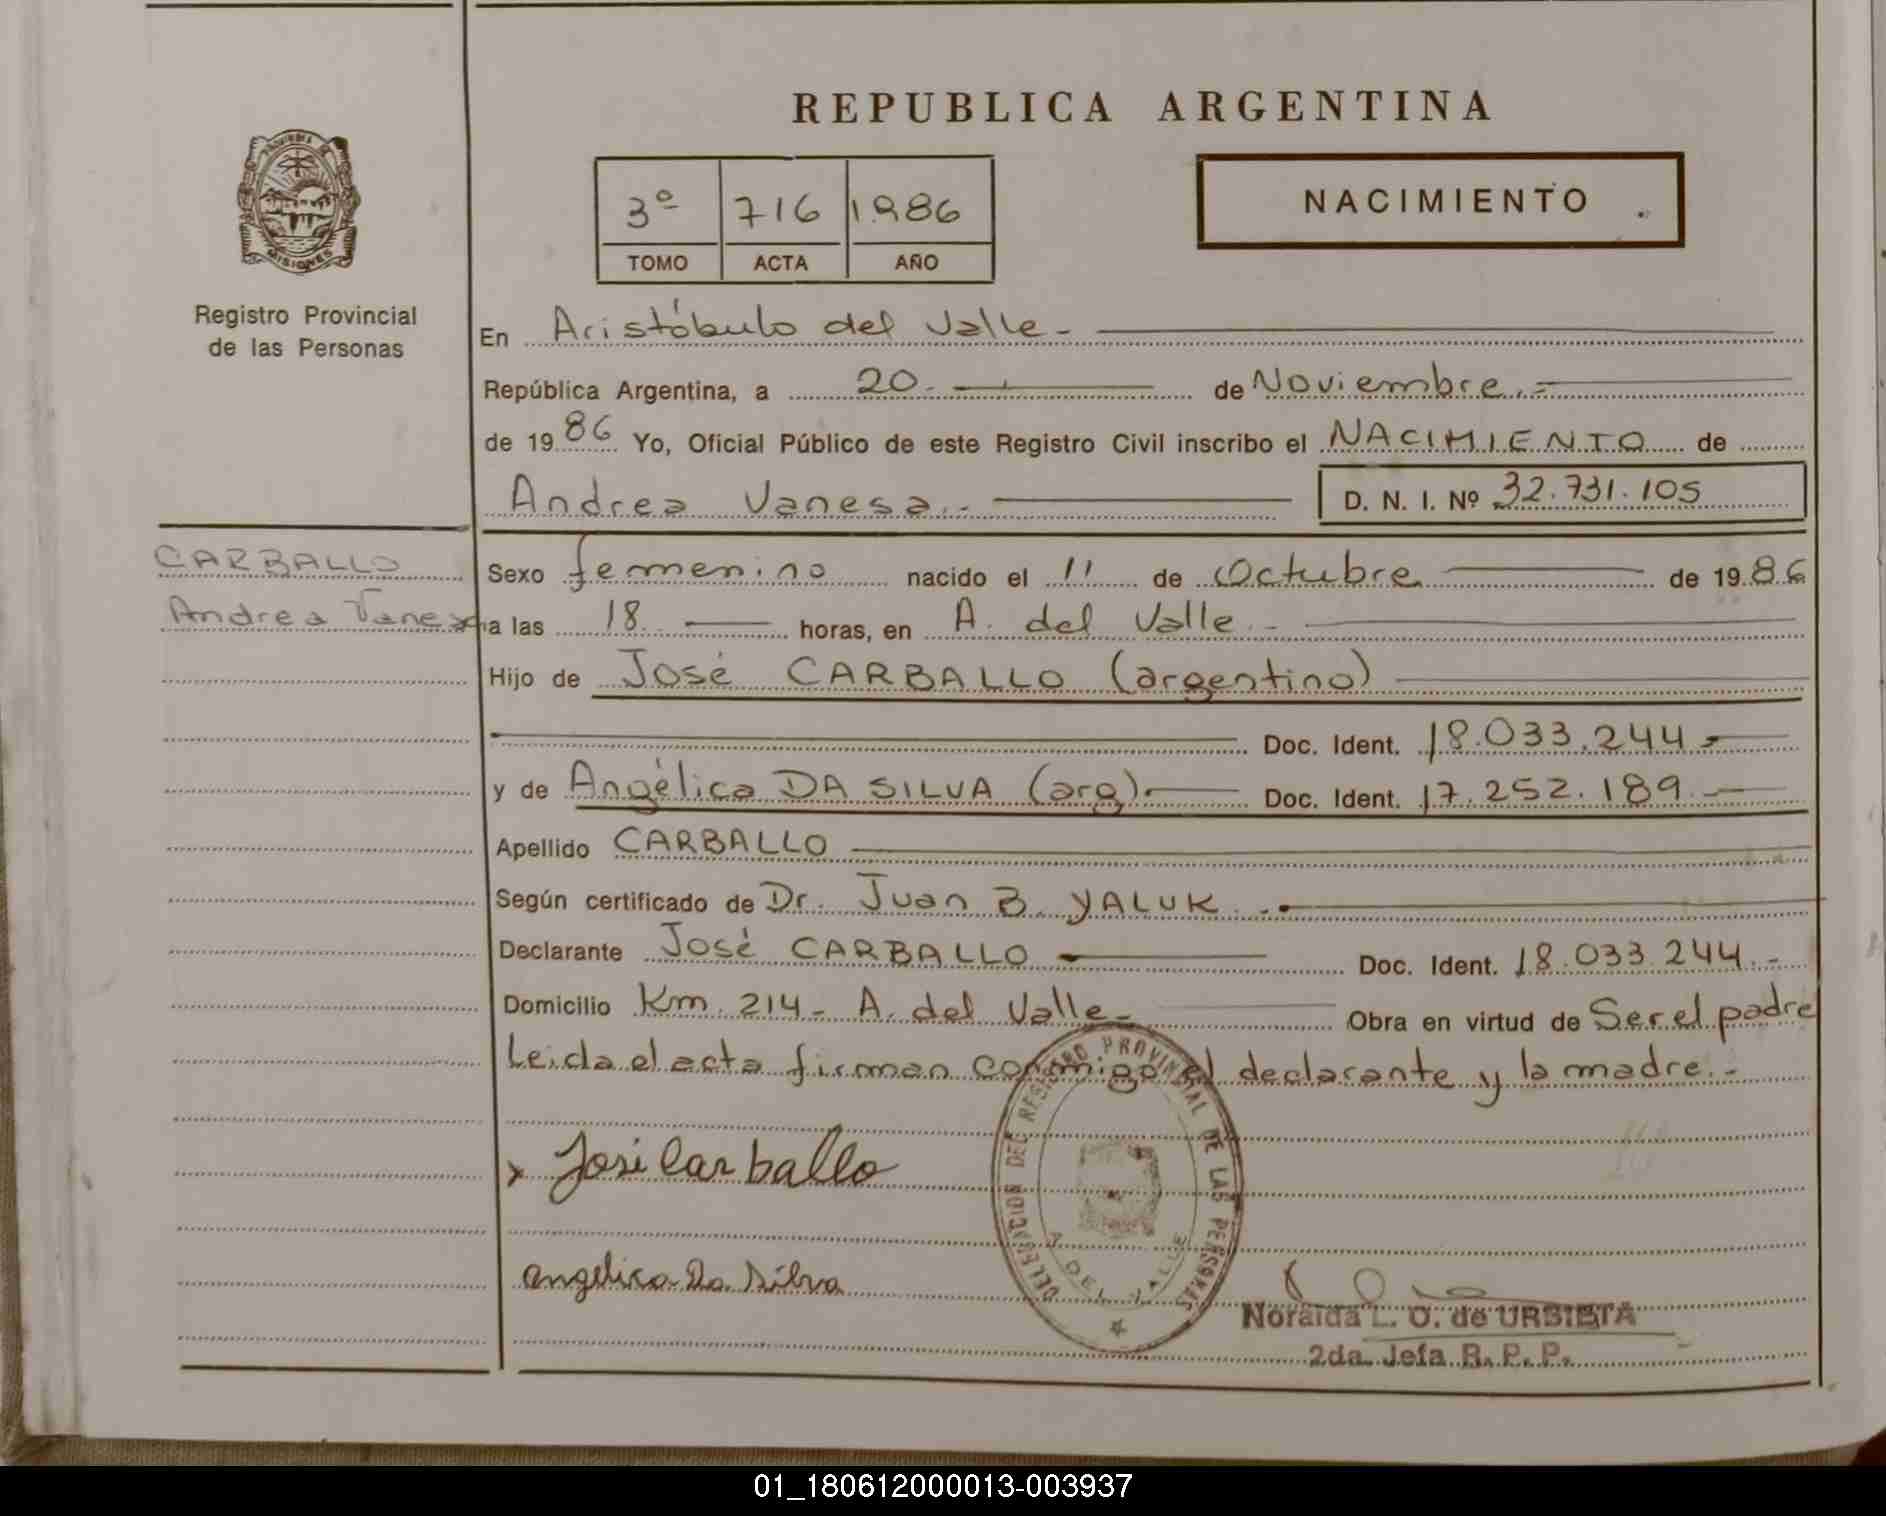 REPUBLICA ARGENTINA
PROVINCIA DE
MISIONES
Registro Provincial
de las Personas
3º 716 1.986
TOMO ACTA AÑO
NACIMIENTO
En Aristóbulo del Valle.-
República Argentina, a 20.- de Noviembre.-
de 1986 Yo, Oficial Público de este Registro Civil inscribo el NACIMIENTO de
Andrea Vanesa.- D. N. I. Nº 32.731.105
CARBALLO
Andrea Vanesa
Sexo femenino nacido el 11 de Octubre de 1986
a las 18. horas, en A. del Valle.-
Hijo de José CARBALLO (argentino)
Doc. Ident. 18.033.244.-
y de Angélica DA SILVA (arg).- Doc. Ident. 17.252.189.-
Apellido CARBALLO
Según certificado de Dr. Juan B. YALUK.-
Declarante José CARBALLO Doc. Ident. 18.033.244.-
Domicilio Km. 214- A. del Valle.- Obra en virtud de Ser el padre
Leida el acta firman conmigo el declarante y la madre.-
x José Carballo
angelica Da Silva
DELEGACION DEL REGISTRO PROVINCIAL DE LAS PERSONAS
A. DEL VALLE
Noraida L. O. de URBIETA
2da. Jefa R. P. P.
01_180612000013-003937